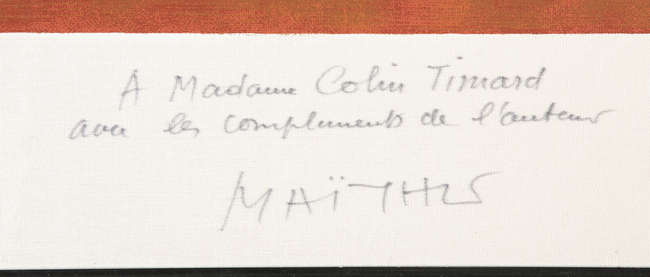 A Madame Colin Timard
avec les compliments de l'auteur
MAÏTHUS